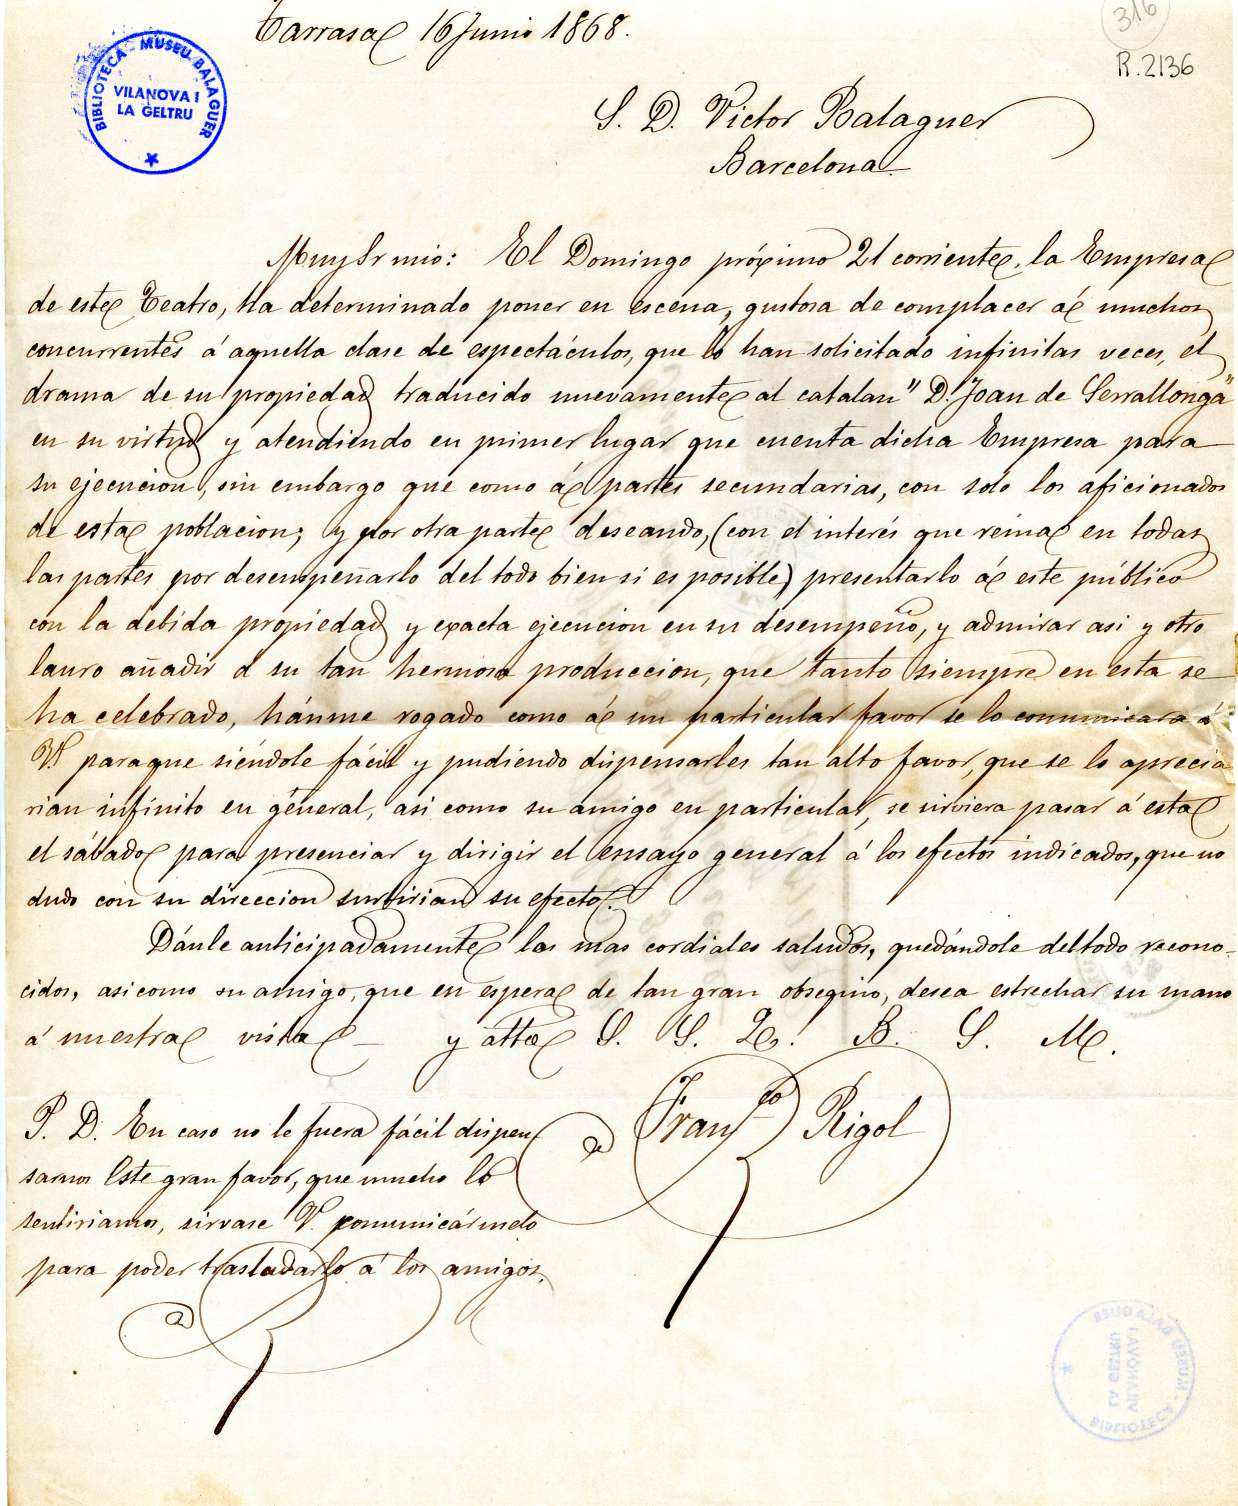 Tarrasa 16 Junio 1868.
316
R.2136
BIBLIOTECA - MUSEU BALAGUER
VILANOVA I
LA GELTRU
S. D. Victor Balaguer
Barcelona
Muy Sr mio: El Domingo próximo 21 corriente, la Empresa
de este Teatro, ha determinado poner en escena, gustosa de complacer á muchos
concurrentes á aquella clase de espectáculos, que lo han solicitado infinitas veces, el
drama de su propiedad traducido nuevamente al catalan "D. Joan de Serrallonga"
en su virtud y atendiendo en primer lugar que cuenta dicha Empresa para
su ejecucion, sin embargo que como á partes secundarias, con solo los aficionados
de esta poblacion; y por otra parte deseando, (con el interés que reina en todas
las partes por desempeñarlo del todo bien si es posible) presentarlo á este público
con la debida propiedad y exacta ejecucion en su desempeño, y admirar asi y otro
lauro añadir á su tan hermosa produccion, que tanto siempre en esta se
ha celebrado, hánme rogado como á un particular favor se lo comunicara á
V. paraque siéndole fácil y pudiendo dispensarles tan alto favor, que se lo aprecia
rian infinito en géneral, asi como su amigo en particular, se sirviera pasar á esta
el sábado para presenciar y dirigir el ensayo general á los efectos indicados, que no
dudo con su direccion surtirian su efecto.
Dánle anticipadamente los mas cordiales saludos, quedándole del todo recono-
cidos, asicomo su amigo, que en espera de tan gran obsequio, desea estrechar su mano
á nuestra vista - y atto S. S. Q. B. S. M.
Franco Rigol
P. D. En caso no le fuera fácil dispen
sarnos Este gran favor, que mucho lo
sentiriamos, sirvase V. comunicármelo
para poder trasladarlo á los amigos.
BIBLIOTECA - MUSEU BALAGUER
VILANOVA I
LA GELTRU